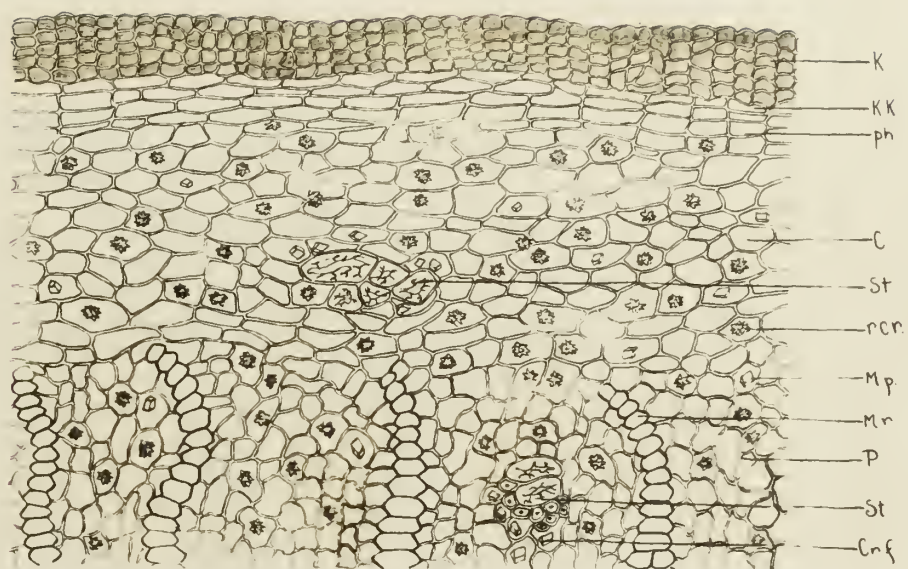 K
KK
ph
C
St
rcr.
Mp.
Mr
P
St
Crf